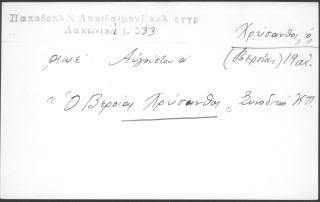 Παπαδοπλ Ν Λακεδαιμον Εκκλ εγγρ
Λακωνικά 1. 333
Χρύσανθος, ὁ,
(Βεροίας) 19 αἰ.
Αὐγούστου α
"Ὁ Βεροίας Χρύσανθος" Συνοδικό